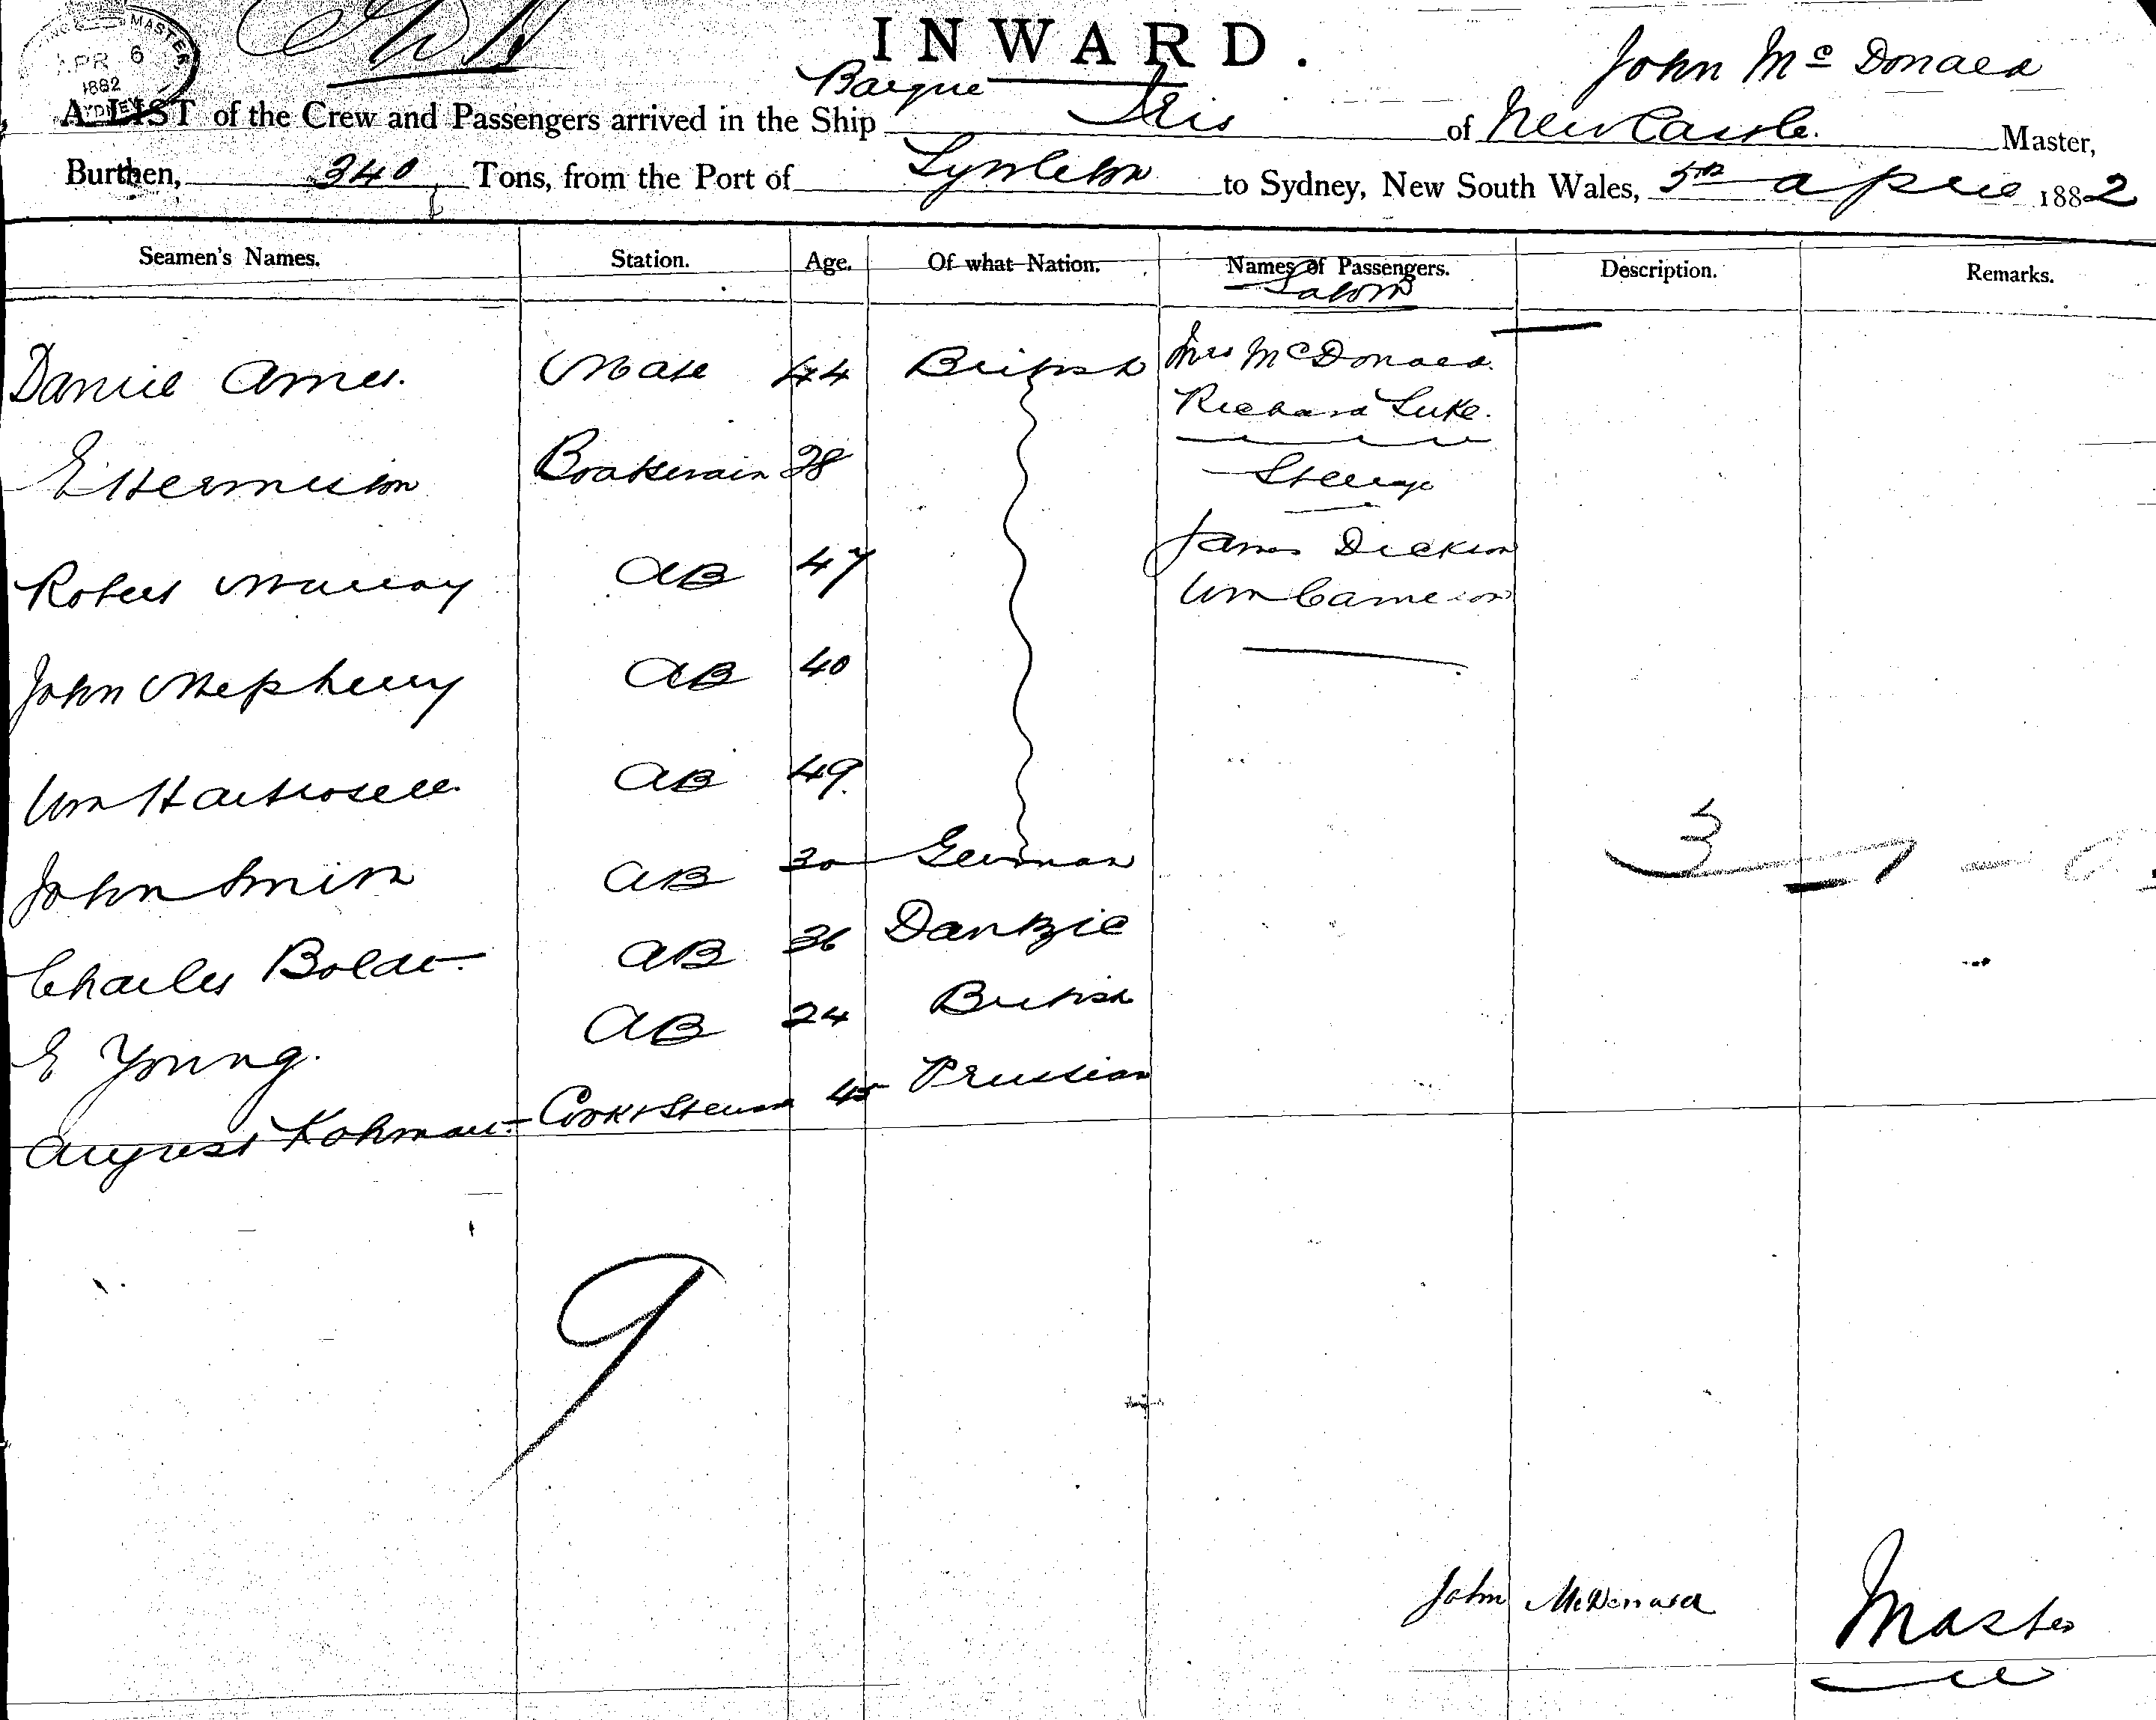 INWARD.
MASTER
APR 6
1882
SYDNEY
John Mc Donald
Barque
A LIST of the Crew and Passengers arrived in the Ship Iris of NewCastle. Master,
Burthen, 340 Tons, from the Port of to Sydney, New South Wales, 5th April 1882
Seamen's Names. Station. Age. Of what Nation. Names of Passengers. Description. Remarks.
Saloon
Daniel Ames. Mate 44 British Mrs McDonald.
Richard Luke.
E Hermiston Boatswain 28
Steerage
Robert Murray AB 47 James Dickson
Wm Cameron
John Mcpherry AB 40
Wm AB 49.
John Smith AB 30 German
3 - 1 -
Charles AB 36 Dantzic
E Young. AB 24 British
August Kohman Cook & Steward 45 Prussian
9
John McDonald
Master